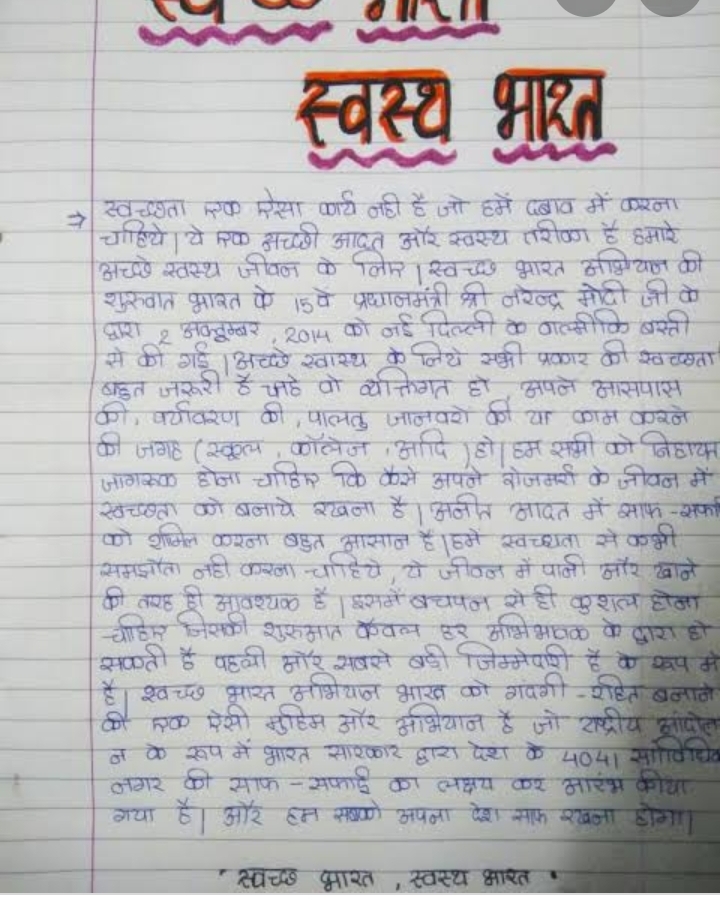 स्वच्छ भारत
स्वस्थ भारत
⇒ स्वच्छता एक ऐसा कार्य नही है जो हमें दबाव में करना
चाहिये। ये एक अच्छी आदत और स्वस्थ तरीका है हमारे
अच्छे स्वस्थ जीवन के लिए। स्वच्छ भारत अभियान की
शुरुवात भारत के 15वे प्रधानमंत्री श्री नरेन्द्र मोदी जी के
द्वारा 2 अक्टूम्बर, 2014 को नई दिल्ली के वाल्मीकि बस्ती
से की गई। अच्छे स्वास्थ के लिये सभी प्रकार की स्वच्छता
बहुत जरूरी है चाहे वो व्यक्तिगत हो, अपने आसपास
की, पर्यावरण की, पालतु जानवरों की या काम करने
की जगह (स्कूल, कॉलेज, आदि) हो। हम सभी को निहायत
जागरूक होना चाहिए कि कैसे अपने रोजमर्रा के जीवन में
स्वच्छता को बनाये रखना है। अपनी आदत में साफ-सफाई
को शामिल करना बहुत आसान है। हमें स्वच्छता से कभी
समझौता नही करना चाहिये, ये जीवन में पानी और खाने
की तरह ही आवश्यक है। इसमें बचपन से ही कुशल होना
चाहिए जिसकी शुरुआत केवल हर अभिभावक के द्वारा हो
सकती है पहली और सबसे बड़ी जिम्मेदारी है के रूप में
है। स्वच्छ भारत अभियान भारत को गंदगी-रहित बनाने
की एक ऐसी मुहिम और अभियान है जो राष्ट्रीय आंदोल
न के रूप में भारत सारकार द्वारा देश के 4041 सांविधिक
नगर की साफ-सफाई का लक्षय कर आरंभ कीया
गया है। और हम सबको अपना देश साफ रखना होगा।
" स्वच्छ भारत, स्वस्थ भारत "